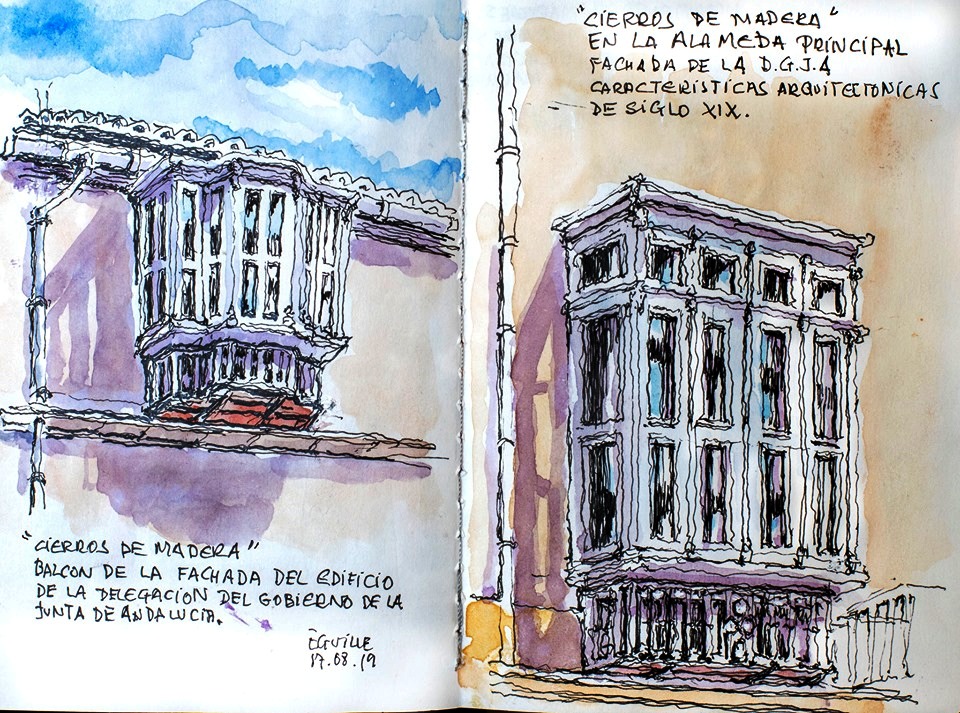 "CIERROS DE MADERA"
BALCON DE LA FACHADA DEL EDIFICIO
DE LA DELEGACION DEL GOBIERNO DE LA
JUNTA DE ANDALUCIA.
EGVILLE
17.08.19
"CIERROS DE MADERA"
EN LA ALAMEDA PRINCIPAL
FACHADA DE LA D.G.J.A
CARACTERISTICAS ARQUITECTONICAS
DE SIGLO XIX.